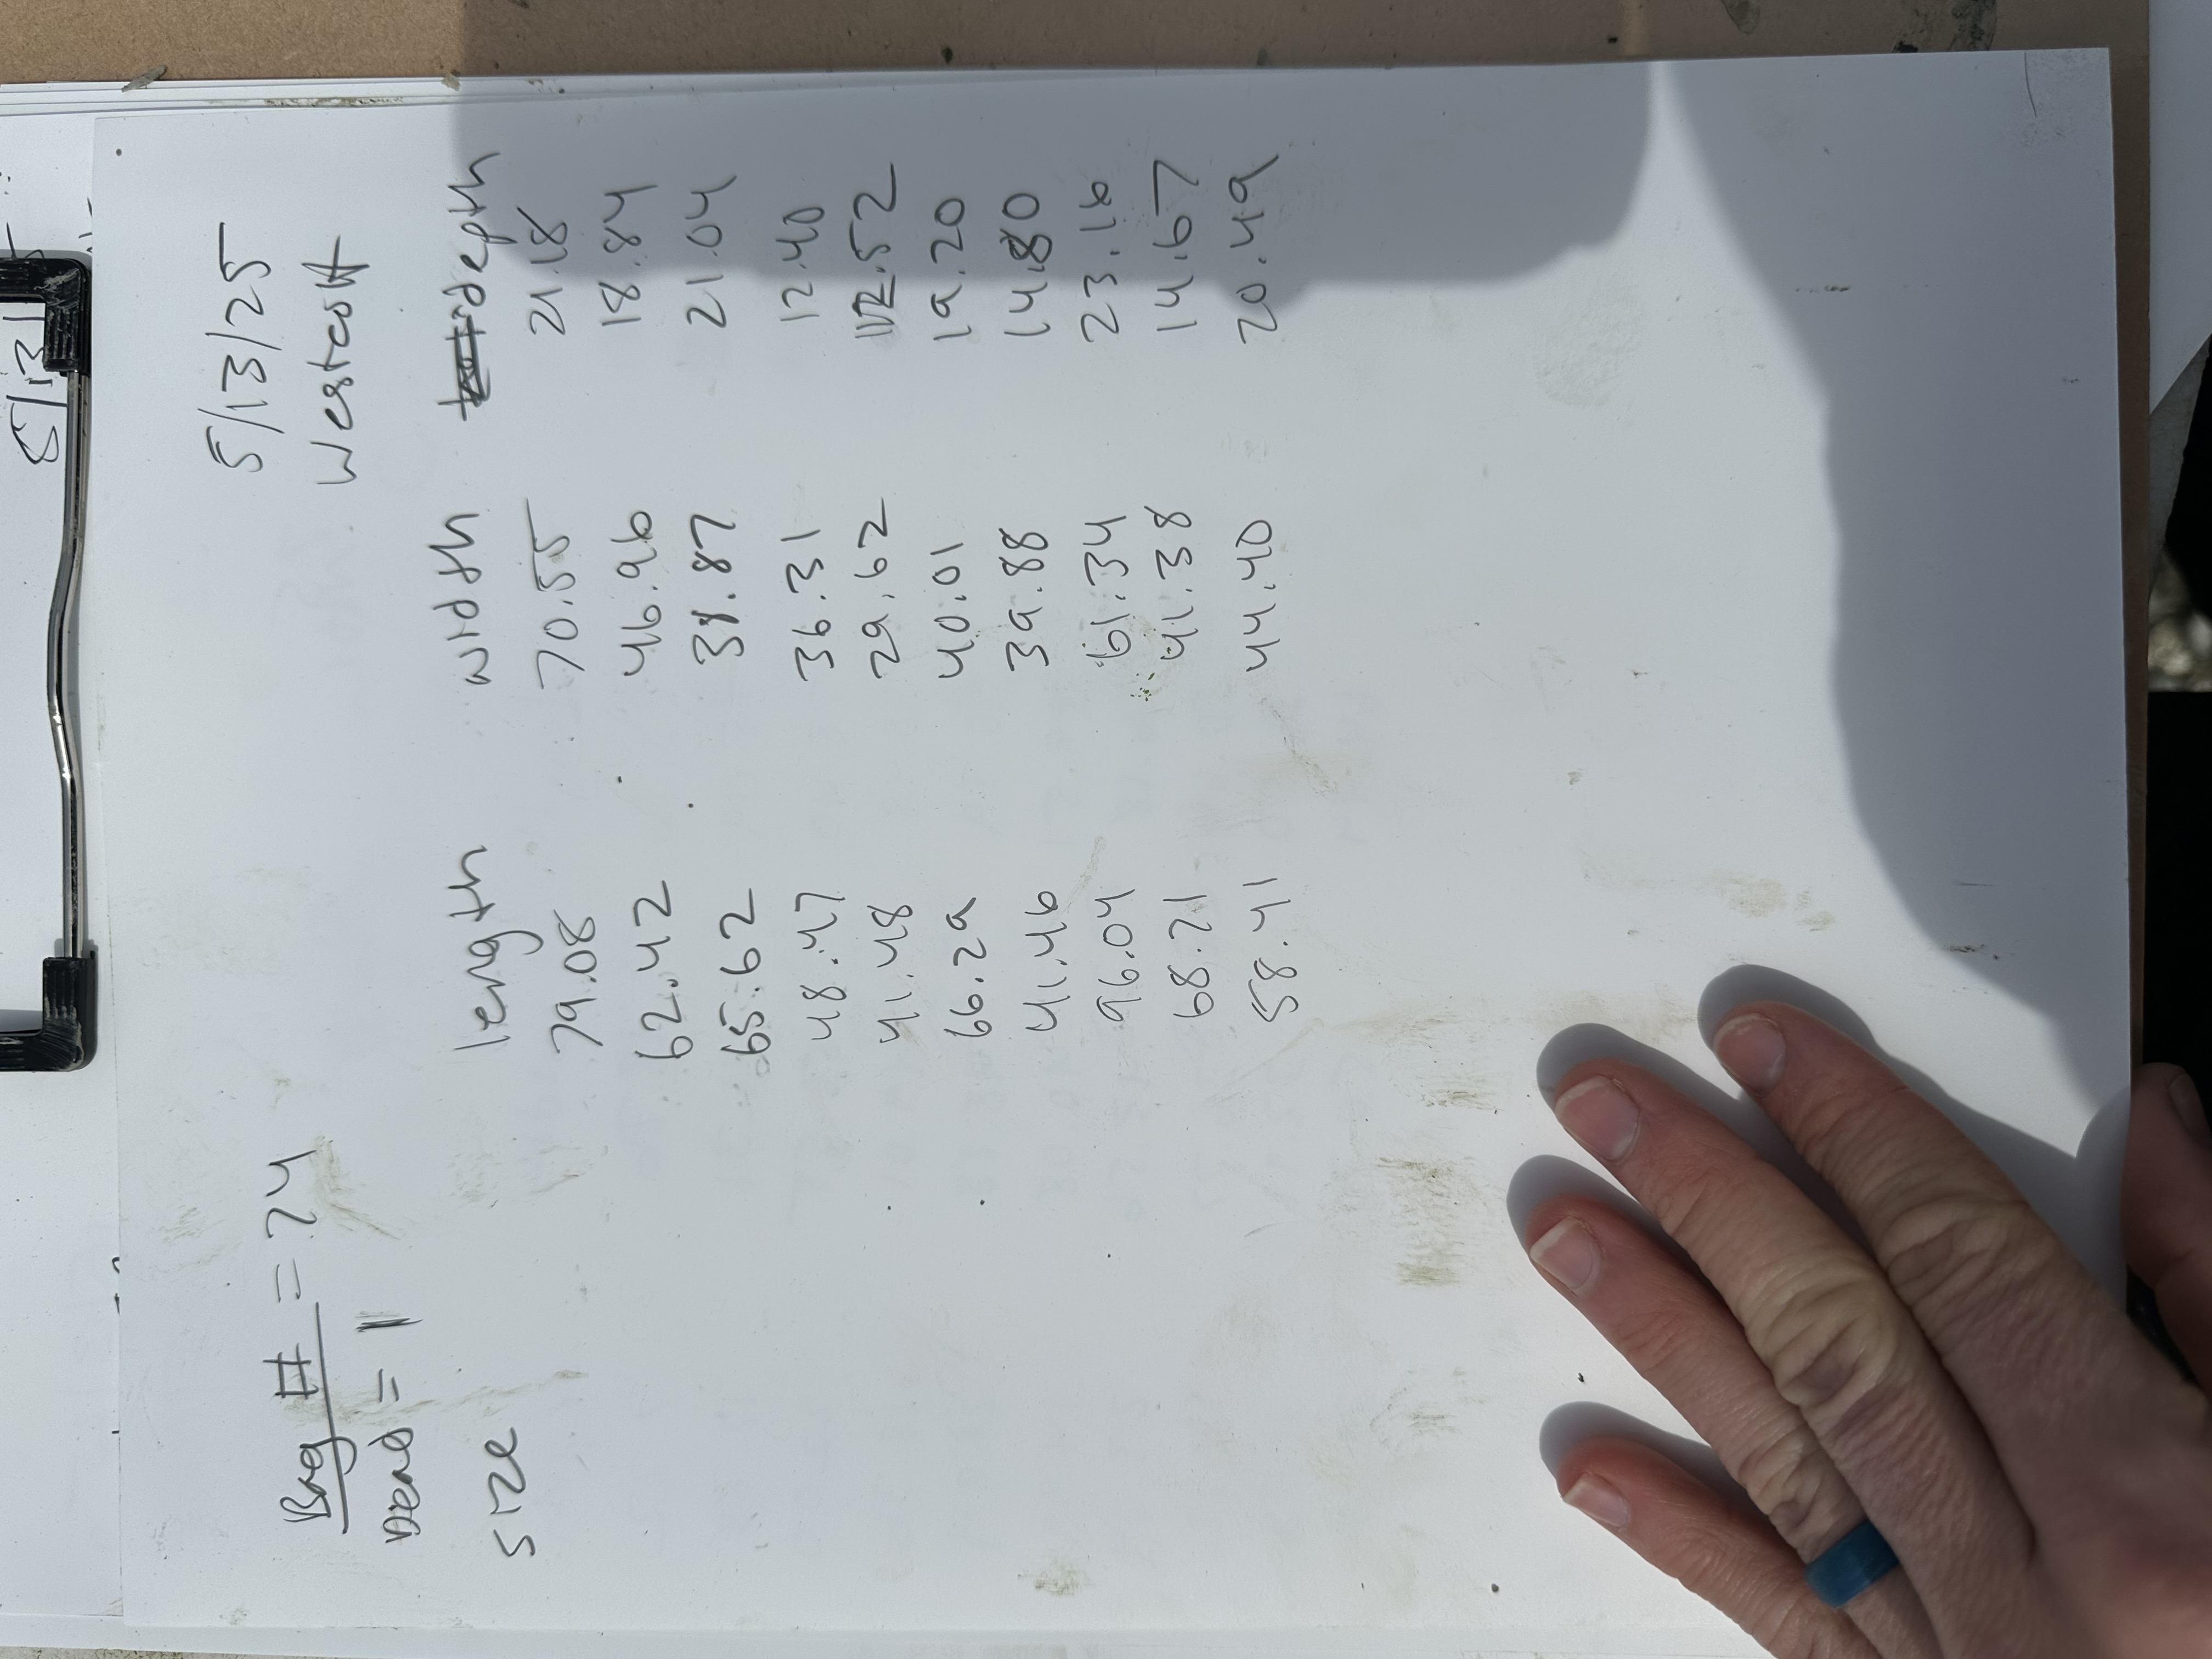 5/13/25
5/13/25
Westcott
Bag # = 74
Dead = 1
size length width depth
79.08 70.55 21.18
62.42 46.96 18.84
65.62 .87 21.04
48.47 36.31 12.40
41.48 29.62 12.52
66.29 40.01 19.20
41.46 39.88 14.80
96.04 61.34 23.16
68.71 41.38 14.67
58.41 44.40 20.49